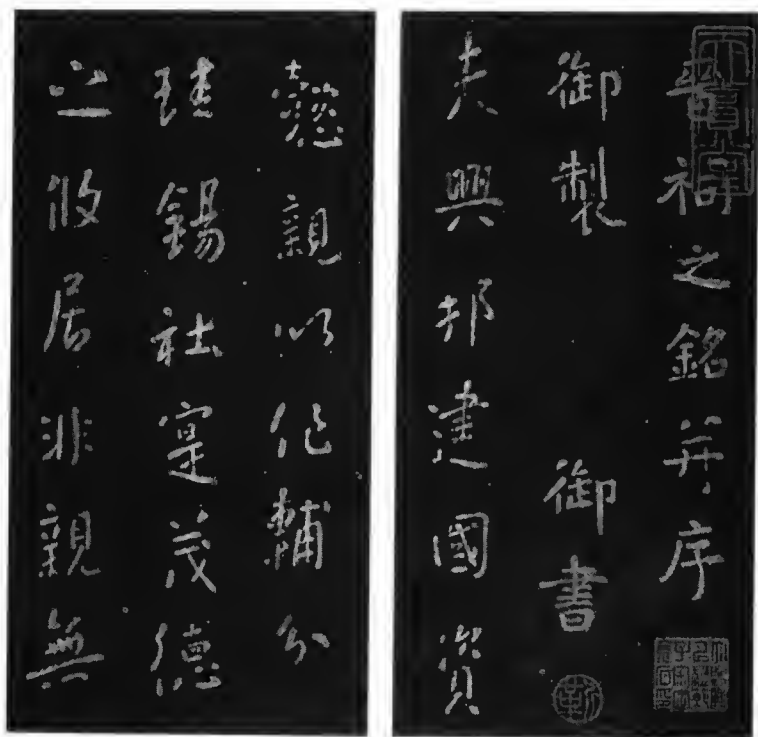 晉祠之銘并序
御製 御書
夫興邦建國資
懿親以作輔分
珪錫社寔茂德
之攸居非親無